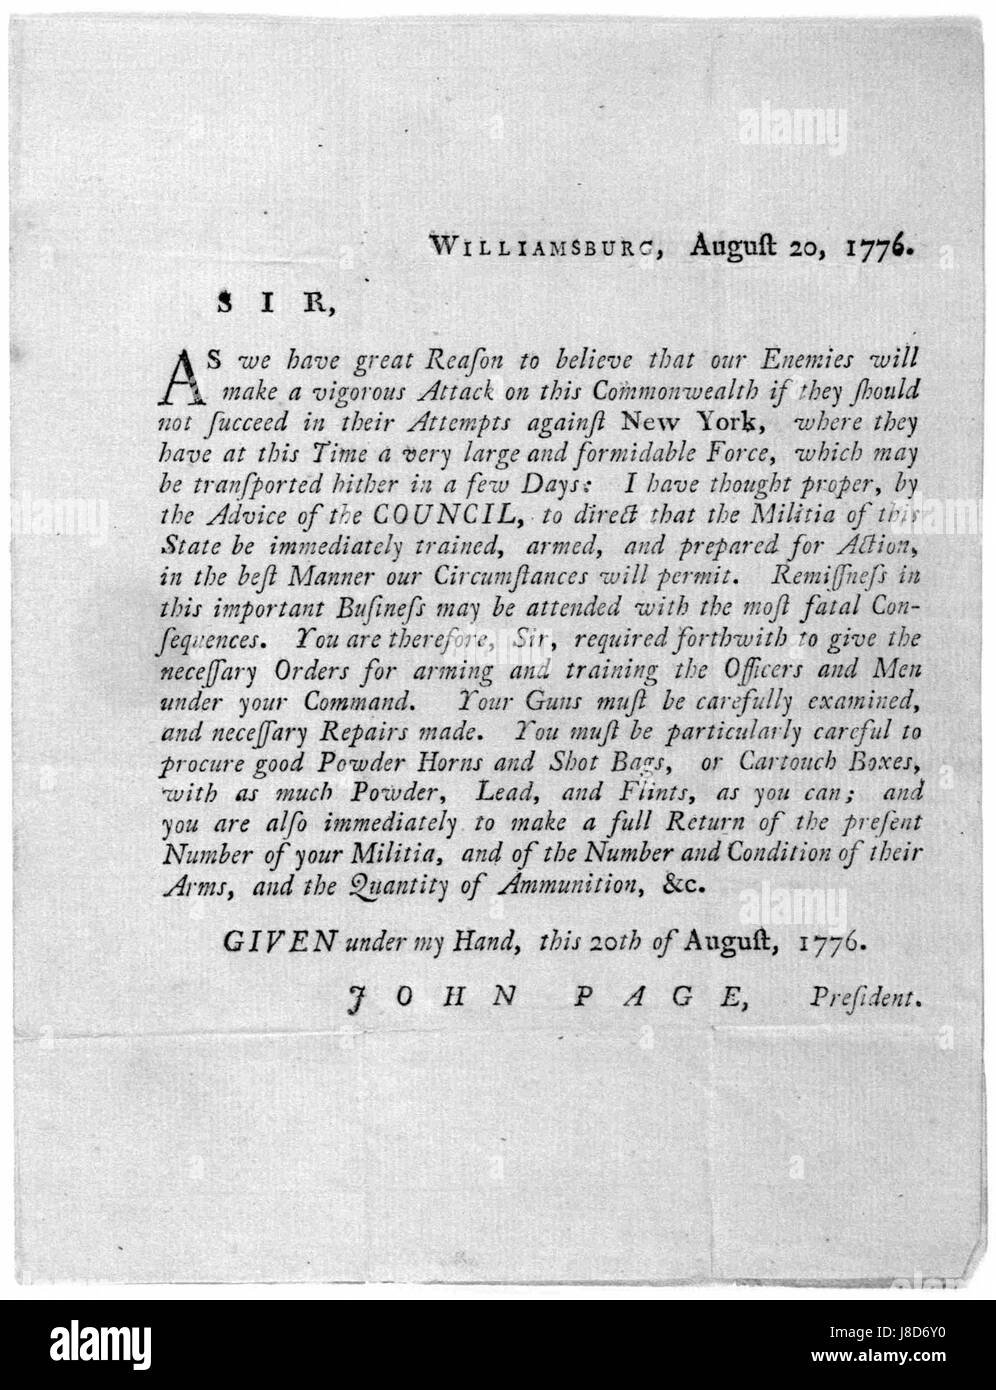 WILLIAMSBURG, Auguſt 20, 1776.
SIR,
AS we have great Reaſon to believe that our Enemies will
make a vigorous Attack on this Commonwealth if they ſhould
not ſucceed in their Attempts againſt New York, where they
have at this Time a very large and formidable Force, which may
be tranſported hither in a few Days: I have thought proper, by
the Advice of the COUNCIL, to direct that the Militia of this
State be immediately trained, armed, and prepared for Action,
in the beſt Manner our Circumſtances will permit. Remiſſneſs in
this important Buſineſs may be attended with the moſt fatal Con-
ſequences. You are therefore, Sir, required forthwith to give the
neceſſary Orders for arming and training the Officers and Men
under your Command. Your Guns muſt be carefully examined,
and neceſſary Repairs made. You muſt be particularly careful to
procure good Powder Horns and Shot Bags, or Cartouch Boxes,
with as much Powder, Lead, and Flints, as you can; and
you are alſo immediately to make a full Return of the preſent
Number of your Militia, and of the Number and Condition of their
Arms, and the Quantity of Ammunition, &c.
GIVEN under my Hand, this 20th of Auguſt, 1776.
JOHN PAGE, Preſident.
alamy
Image ID: J8D6Y0
www.alamy.com